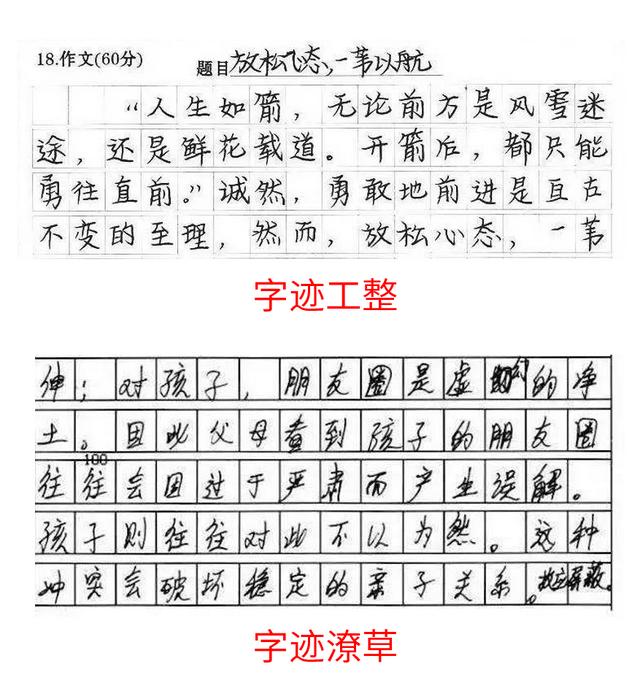 18.作文(60分)
题目 放松心态,一苇以航
“人生如箭，无论前方是风雪迷
途，还是鲜花载道。开箭后，都只能
勇往直前。”诚然，勇敢地前进是亘古
不变的至理，然而，放松心态，一苇
字迹工整
伸；对孩子，朋友圈是虚的净
土。因此父母看到孩子的朋友圈
100
往往会因过于严肃而产生误解。
孩子则往往对此不以为然。这种
冲突会破坏稳定的亲子关系。故应屏蔽。
字迹潦草